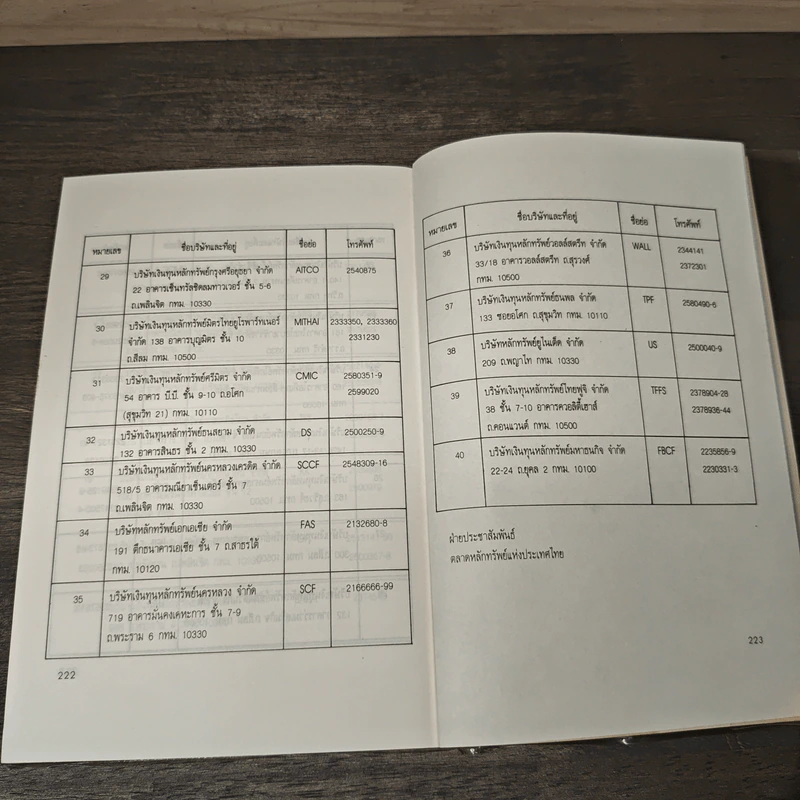 หมายเลข ชื่อบริษัทและที่อยู่ ชื่อย่อ โทรศัพท์
29 บริษัทเงินทุนหลักทรัพย์กรุงศรีอยุธยา จำกัด AITCO 2540875
22 อาคารเซ็นทรัลชิดลมทาวเวอร์ ชั้น 5-6
ถ.เพลินจิต กทม. 10330
30 บริษัทเงินทุนหลักทรัพย์มิตรไทยยูโรพาร์ทเนอร์ MITHAI 2333350, 2333360
จำกัด 138 อาคารบุญมิตร ชั้น 10 2331230
ถ.สีลม กทม. 10500
31 บริษัทเงินทุนหลักทรัพย์ศรีมิตร จำกัด CMIC 2580351-9
54 อาคาร บี.บี. ชั้น 9-10 ถ.อโศก 2599020
(สุขุมวิท 21) กทม. 10110
32 บริษัทเงินทุนหลักทรัพย์ธนสยาม จำกัด DS 2500250-9
132 อาคารสินธร ชั้น 2 กทม. 10330
33 บริษัทเงินทุนหลักทรัพย์นครหลวงเครดิต จำกัด SCCF 2548309-16
518/5 อาคารมณียาเซ็นเตอร์ ชั้น 7
ถ.เพลินจิต กทม. 10330
34 บริษัทหลักทรัพย์เอกเอเซีย จำกัด FAS 2132680-8
191 ตึกธนาคารเอเซีย ชั้น 7 ถ.สาธรใต้
กทม. 10120
35 บริษัทเงินทุนหลักทรัพย์นครหลวง จำกัด SCF 2166666-99
719 อาคารมั่นคงเคหะการ ชั้น 7-9
ถ.พระราม 6 กทม. 10330
222
หมายเลข ชื่อบริษัทและที่อยู่ ชื่อย่อ โทรศัพท์
36 บริษัทเงินทุนหลักทรัพย์วอลล์สตรีท จำกัด WALL 2344141
33/18 อาคารวอลล์สตรีท ถ.สุรวงศ์ 2372301
กทม. 10500
37 บริษัทเงินทุนหลักทรัพย์ธนพล จำกัด TPF 2580490-6
133 ซอยอโศก ถ.สุขุมวิท กทม. 10110
38 บริษัทหลักทรัพย์ยูไนเต็ด จำกัด US 2500040-9
209 ถ.พญาไท กทม. 10330
39 บริษัทเงินทุนหลักทรัพย์ไทยฟูจิ จำกัด TFFS 2378904-28
38 ชั้น 7-10 อาคารควอลิตี้เฮาส์ 2378936-44
ถ.คอนแวนต์ กทม. 10500
40 บริษัทเงินทุนหลักทรัพย์มหาธนกิจ จำกัด FBCF 2235856-9
22-24 ถ.ยุคล 2 กทม. 10100 2230331-3
ฝ่ายประชาสัมพันธ์
ตลาดหลักทรัพย์แห่งประเทศไทย
223